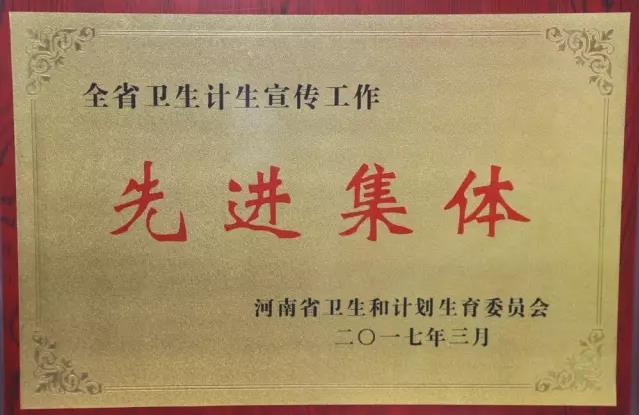 全省卫生计生宣传工作
先进集体
河南省卫生和计划生育委员会
二〇一七年三月